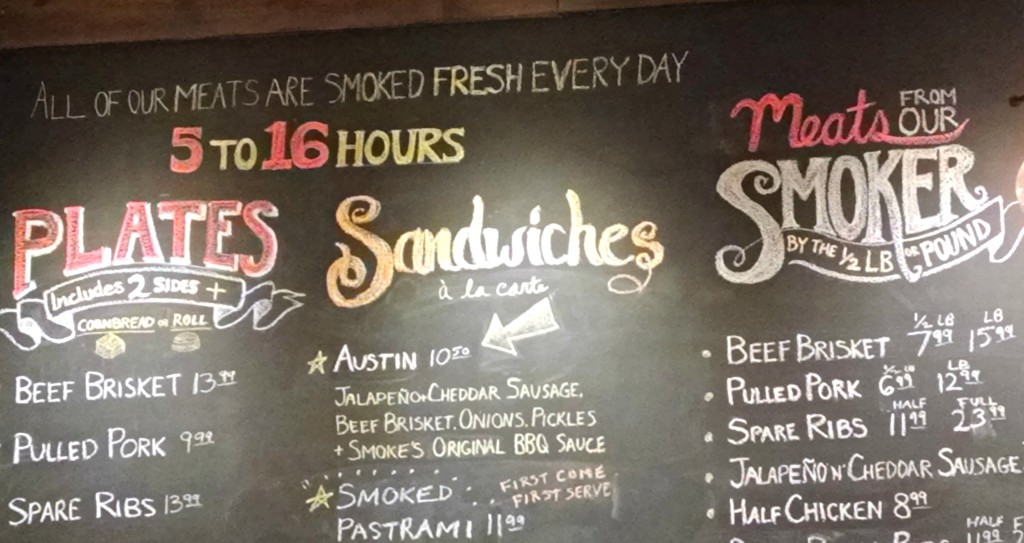 ALL OF OUR MEATS ARE SMOKED FRESH EVERY DAY
5 TO 16 HOURS
PLATES
Includes 2 SIDES +
CORNBREAD OR ROLL
BEEF BRISKET 13.99
PULLED PORK 9.99
SPARE RIBS 13.99
Sandwiches
à la carte
AUSTIN 10.50
JALAPEÑO + CHEDDAR SAUSAGE,
BEEF BRISKET, ONIONS, PICKLES
+ SMOKE'S ORIGINAL BBQ SAUCE
SMOKED FIRST COME
FIRST SERVE
PASTRAMI 11.99
Meats FROM
OUR
SMOKER
BY THE 1/2 LB OR POUND
1/2 LB LB
BEEF BRISKET 7.99 15.99
1/2 LB LB
PULLED PORK 6.99 12.99
HALF FULL
SPARE RIBS 11.99 23.99
JALAPEÑO N' CHEDDAR SAUSAGE
HALF CHICKEN 8.99
HALF
11.99